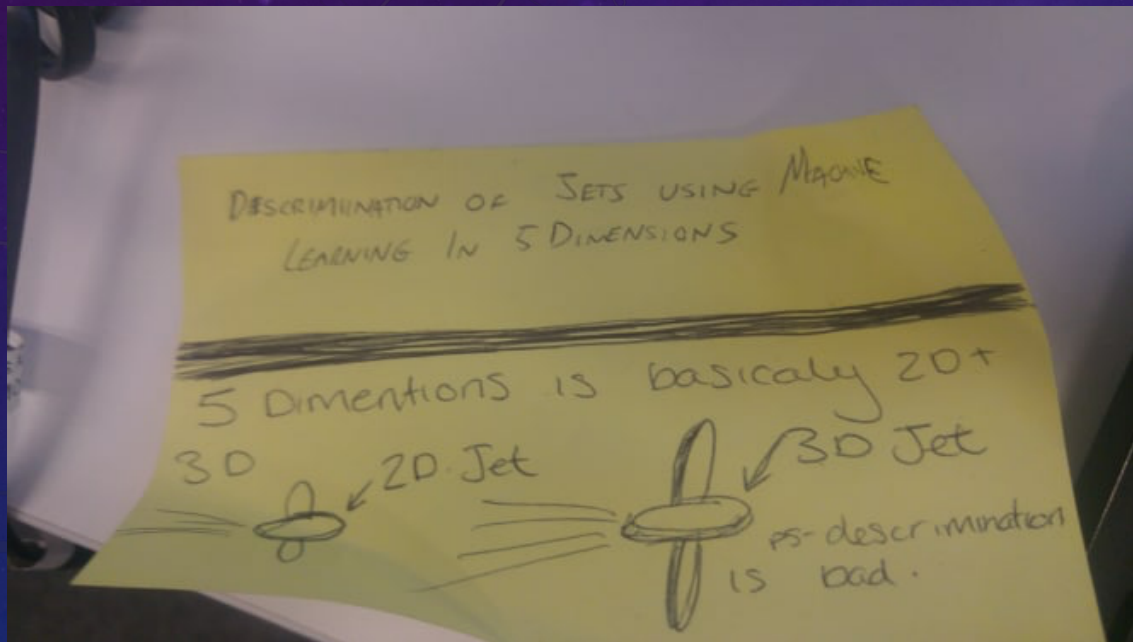 DESCRIMINATION OF JETS USING MACHINE
LEARNING IN 5 DIMENSIONS
5 Dimentions is basicaly 2D+
3D
2D Jet
3D Jet
ps-descrimination
is bad.